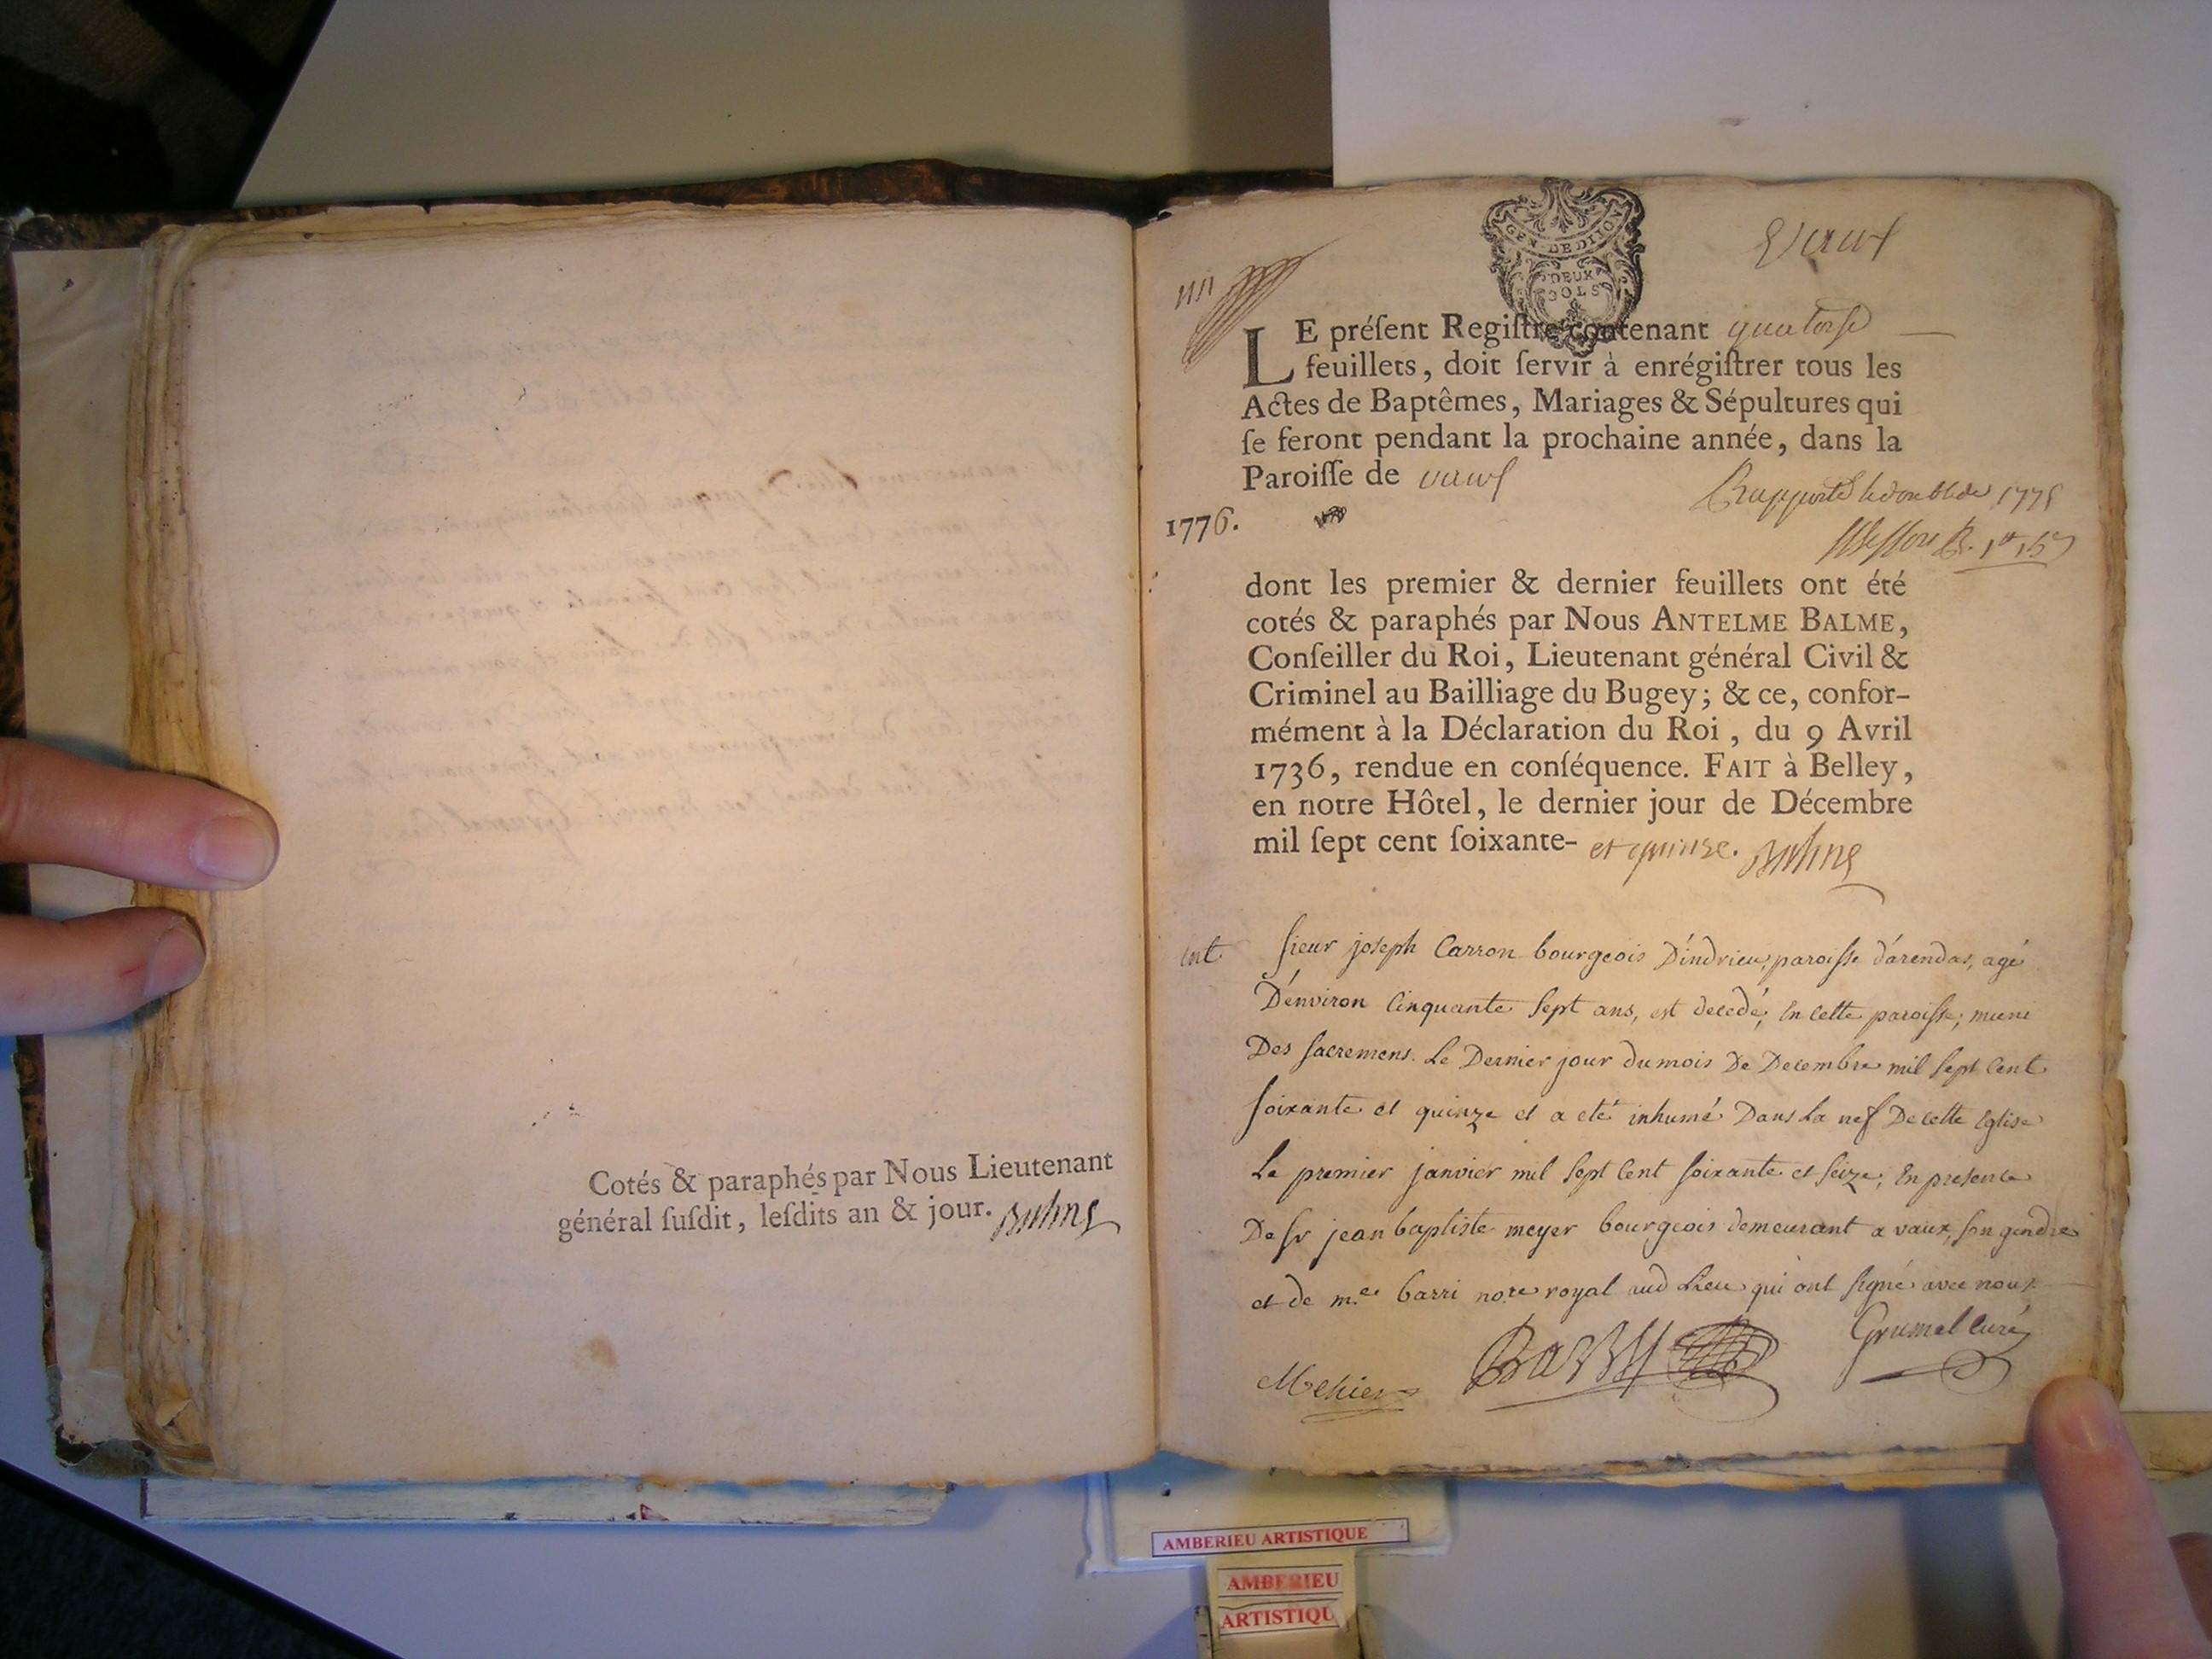 Cotés & paraphés par Nous Lieutenant
général ſuſdit, leſdits an & jour.
GEN. DE DIJON
DEUX
SOLS
Vaux
LE préſent Regiſtre contenant quatorſe
feuillets, doit ſervir à enrégiſtrer tous les
Actes de Baptêmes, Mariages & Sépultures qui
ſe feront pendant la prochaine année, dans la
Paroiſſe de vaux
Rapporté le double de 1775
1776.
dont les premier & dernier feuillets ont été
cotés & paraphés par Nous ANTELME BALME,
Conſeiller du Roi, Lieutenant général Civil &
Criminel au Bailliage du Bugey; & ce, confor-
mément à la Déclaration du Roi, du 9 Avril
1736, rendue en conſéquence. FAIT à Belley,
en notre Hôtel, le dernier jour de Décembre
mil ſept cent ſoixante- et quinze.
ſieur joseph Carron bourgeois D'indrieu, paroiſſe d'arendas, agé
D'environ Cinquante Sept ans, est decedé, En Cette paroiſſe, muni
Des ſacremens. Le Dernier jour du mois De Decembre mil Sept Cent
ſoixante et quinze et a eté inhumé Dans La nef De cette Eglise
Le premier janvier mil Sept Cent ſoixante et ſeize, En presence
De Sr jean baptiste meyer bourgeois demeurant a vaux, ſon gendre
et de m.e barri no.re royal aud Lieu qui ont ſigné avec nous
Mehier Barry Grumel Curé
AMBERIEU ARTISTIQUE
AMBERIEU
ARTISTIQU